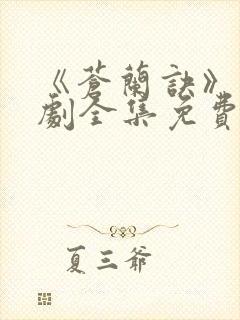 《蒼蘭訣》
劇全集免費
夏三爺